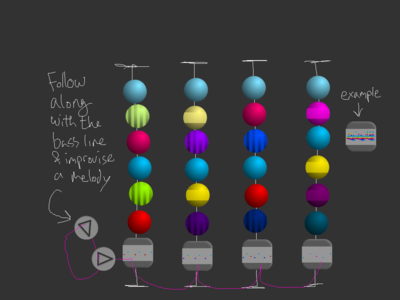 Follow
along
with the
bass line
& improvise
a melody
example